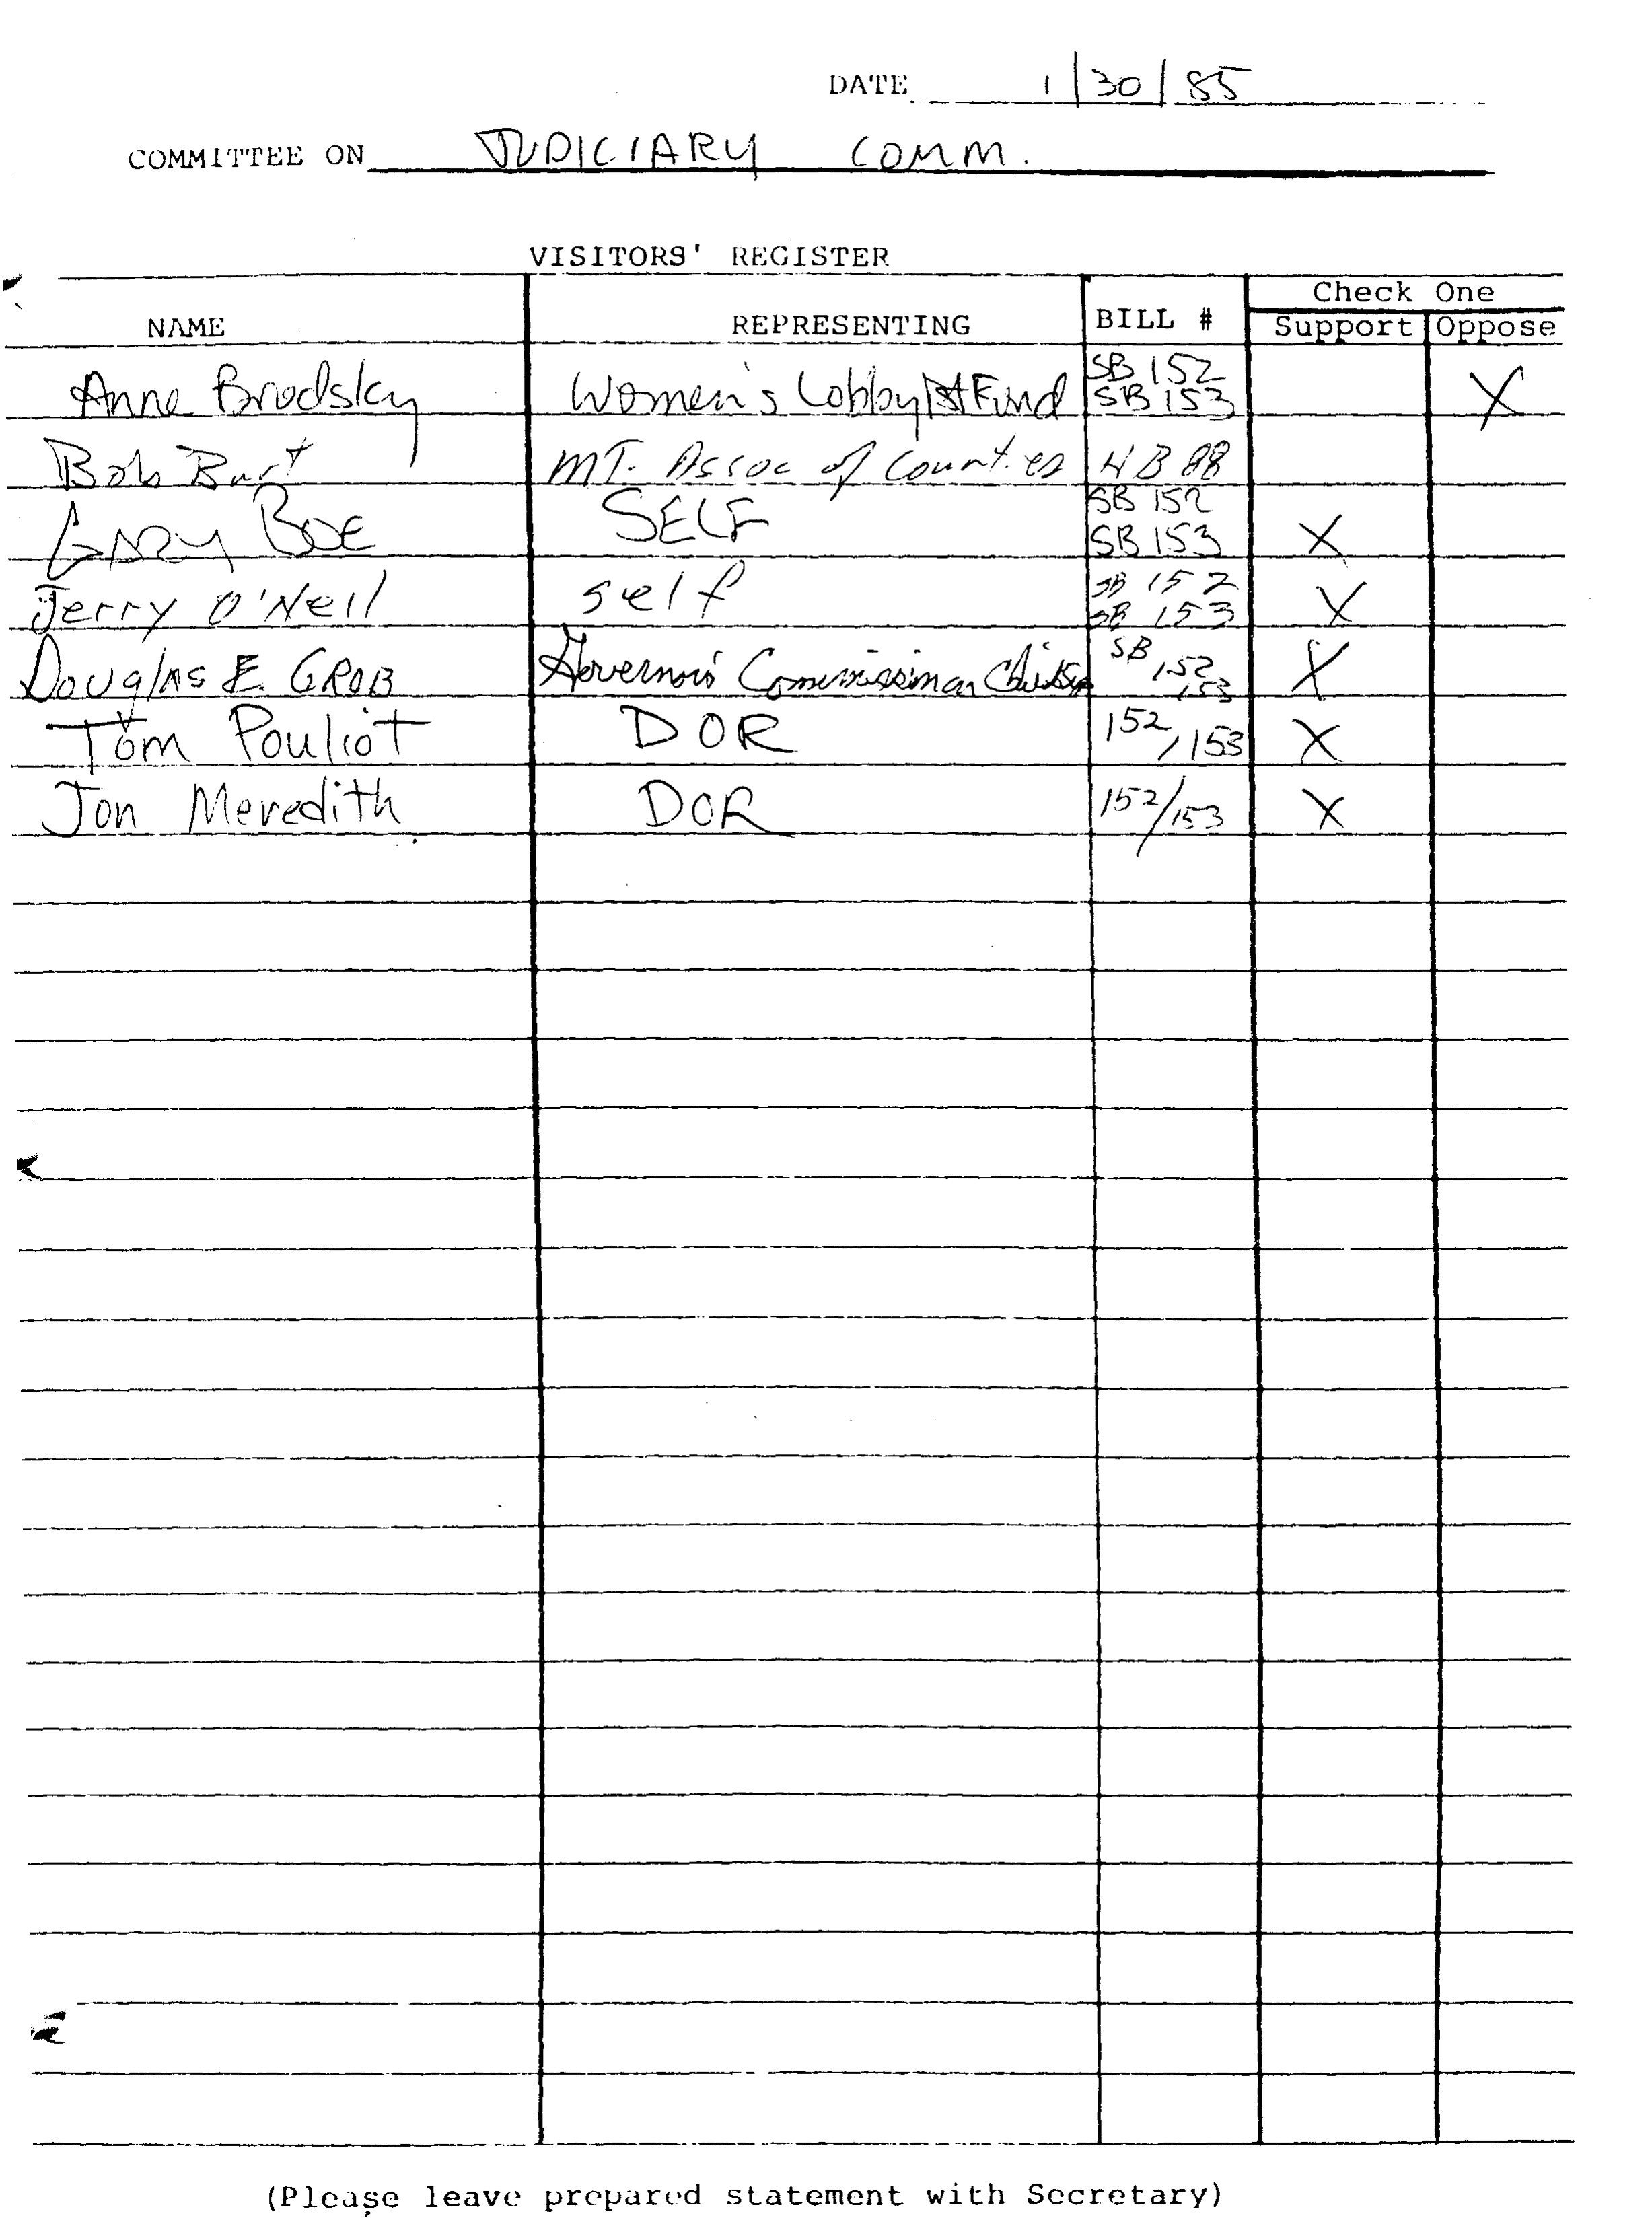 DATE 1/30/85
COMMITTEE ON JUDICIARY COMM.
VISITORS' REGISTER
NAME REPRESENTING BILL # Check One
Support Oppose
Anne Brodsky Women's Lobbyist Fund SB 152 SB 153 X
Bob MT. Assoc of Counties HB 88
GARY BOE SELF SB 152 SB 153 X
Jerry O'Neil self SB 152 SB 153 X
Douglas E. GROB Governor's Commission on SB 152 153 X
Tom Pouliot DOR 152/153 X
Jon Meredith DOR 152/153 X
(Please leave prepared statement with Secretary)